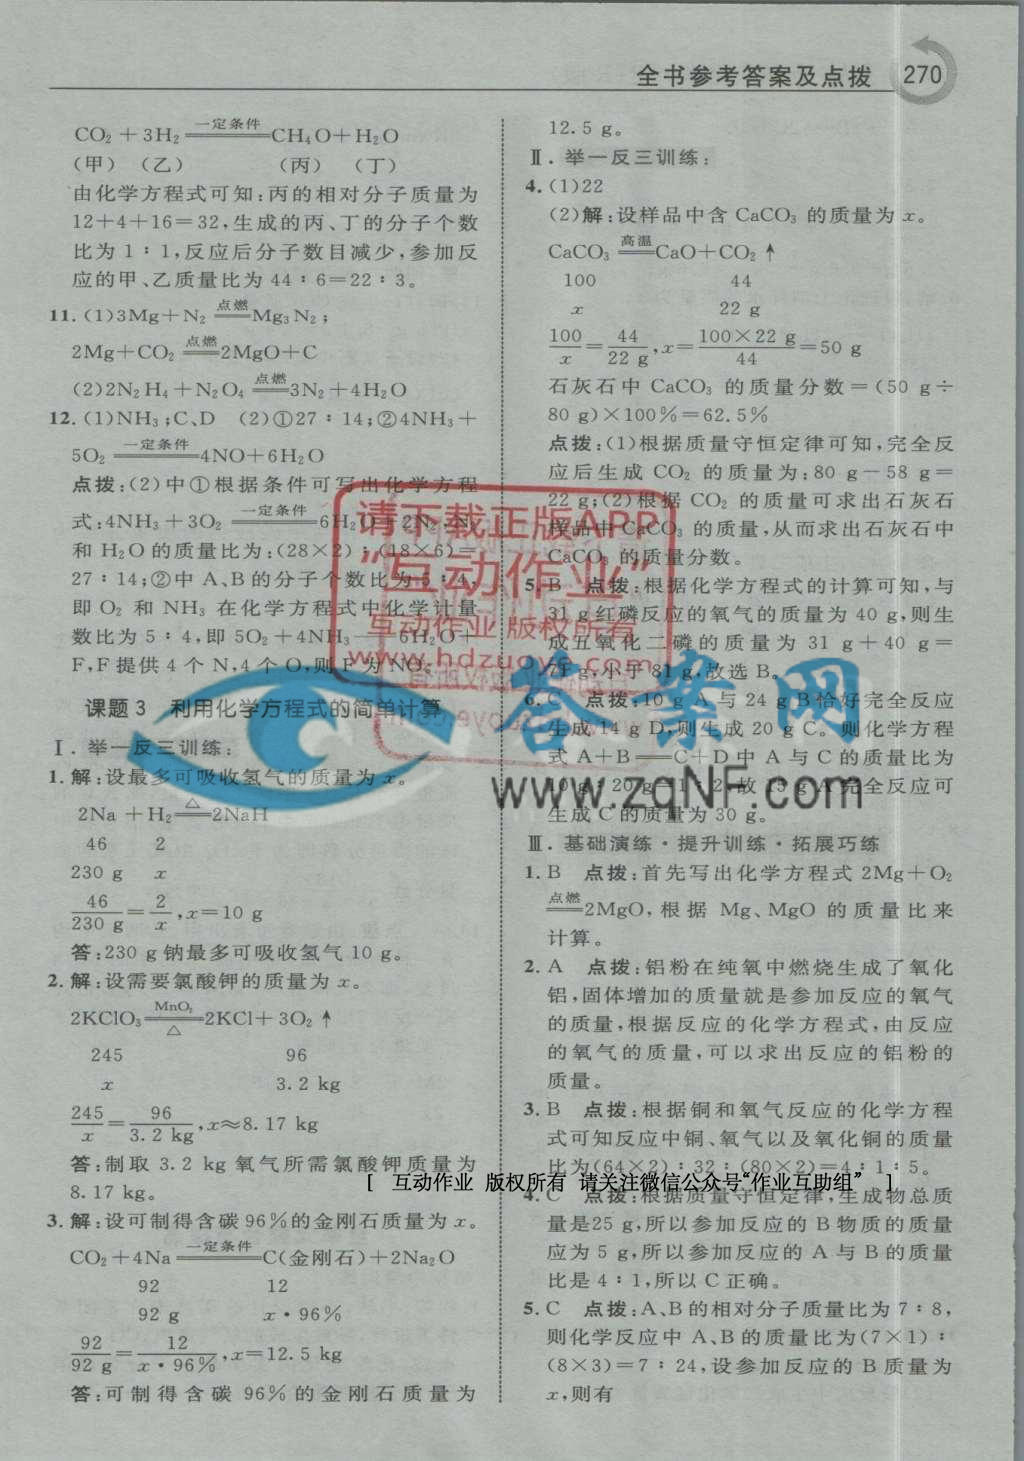 全书参考答案及点拨 270
CO₂+3H₂ 一定条件══ CH₄O+H₂O
(甲) (乙) (丙) (丁)
由化学方程式可知:丙的相对分子质量为
12+4+16=32,生成的丙、丁的分子个数
比为1∶1,反应后分子数目减少,参加反
应的甲、乙质量比为44∶6=22∶3。
11. (1)3Mg+N₂ 点燃══ Mg₃N₂;
2Mg+CO₂ 点燃══ 2MgO+C
(2)2N₂H₄+N₂O₄ 点燃══ 3N₂+4H₂O
12. (1)NH₃;C、D (2)①27∶14;②4NH₃+
5O₂ 一定条件══ 4NO+6H₂O
点拨:(2)中①根据条件可写出化学方程
式:4NH₃+3O₂ 一定条件══ 6H₂O+2N₂,N₂
和H₂O的质量比为:(28×2)∶(18×6)=
27∶14;②中A、B的分子个数比为5∶4,
即O₂和NH₃在化学方程式中化学计量
数比为5∶4,即5O₂+4NH₃══6H₂O+
F,F提供4个N,4个O,则F为NO。
课题3 利用化学方程式的简单计算
Ⅰ. 举一反三训练:
1. 解:设最多可吸收氢气的质量为x。
2Na+H₂ △══ 2NaH
46 2
230 g x
46/230 g=2/x,x=10 g
答:230 g钠最多可吸收氢气10 g。
2. 解:设需要氯酸钾的质量为x。
2KClO₃ MnO₂══△ 2KCl+3O₂↑
245 96
x 3.2 kg
245/x=96/3.2 kg,x≈8.17 kg
答:制取3.2 kg氧气所需氯酸钾质量为
8.17 kg。
3. 解:设可制得含碳96%的金刚石质量为x。
CO₂+4Na 一定条件══ C(金刚石)+2Na₂O
92 12
92 g x·96%
92/92 g=12/x·96%,x=12.5 kg
答:可制得含碳96%的金刚石质量为
12.5 g。
Ⅱ. 举一反三训练:
4. (1)22
(2)解:设样品中含CaCO₃的质量为x。
CaCO₃ 高温══ CaO+CO₂↑
100 44
x 22 g
100/x=44/22 g,x=100×22 g/44=50 g
石灰石中CaCO₃的质量分数=(50 g÷
80 g)×100%=62.5%
点拨:(1)根据质量守恒定律可知,完全反
应后生成CO₂的质量为:80 g-58 g=
22 g;(2)根据CO₂的质量可求出石灰石
样品中CaCO₃的质量,从而求出石灰石中
CaCO₃的质量分数。
5. B 点拨:根据化学方程式的计算可知,与
31 g红磷反应的氧气的质量为40 g,则生
成五氧化二磷的质量为31 g+40 g=
71 g,小于81 g,故选B。
6. C 点拨:10 g A与24 g B恰好完全反应
生成14 g D,则生成20 g C。则化学方程
式A+B══C+D中A与C的质量比为
10 g∶20 g=1∶2,故15 g A完全反应可
生成C的质量为30 g。
Ⅲ. 基础演练·提升训练·拓展巧练
1. B 点拨:首先写出化学方程式2Mg+O₂
点燃══2MgO,根据Mg、MgO的质量比来
计算。
2. A 点拨:铝粉在纯氧中燃烧生成了氧化
铝,固体增加的质量就是参加反应的氧气
的质量,根据反应的化学方程式,由反应
的氧气的质量,可以求出反应的铝粉的
质量。
3. B 点拨:根据铜和氧气反应的化学方程
式可知反应中铜、氧气以及氧化铜的质量
比为(64×2)∶32∶(80×2)=4∶1∶5。
4. C 点拨:根据质量守恒定律,生成物总质
量是25 g,所以参加反应的B物质的质量
应为5 g,所以参加反应的A与B的质量
比是4∶1,所以C正确。
5. C 点拨:A、B的相对分子质量比为7∶8,
则化学反应中A、B的质量比为(7×1)∶
(8×3)=7∶24,设参加反应的B质量为
x,则有
请下载正版APP
“互动作业”
互动作业 版权所有
www.hdzuoye.com
答案网
www.zqNF.com
[ 互动作业 版权所有 请关注微信公众号“作业互助组” ]